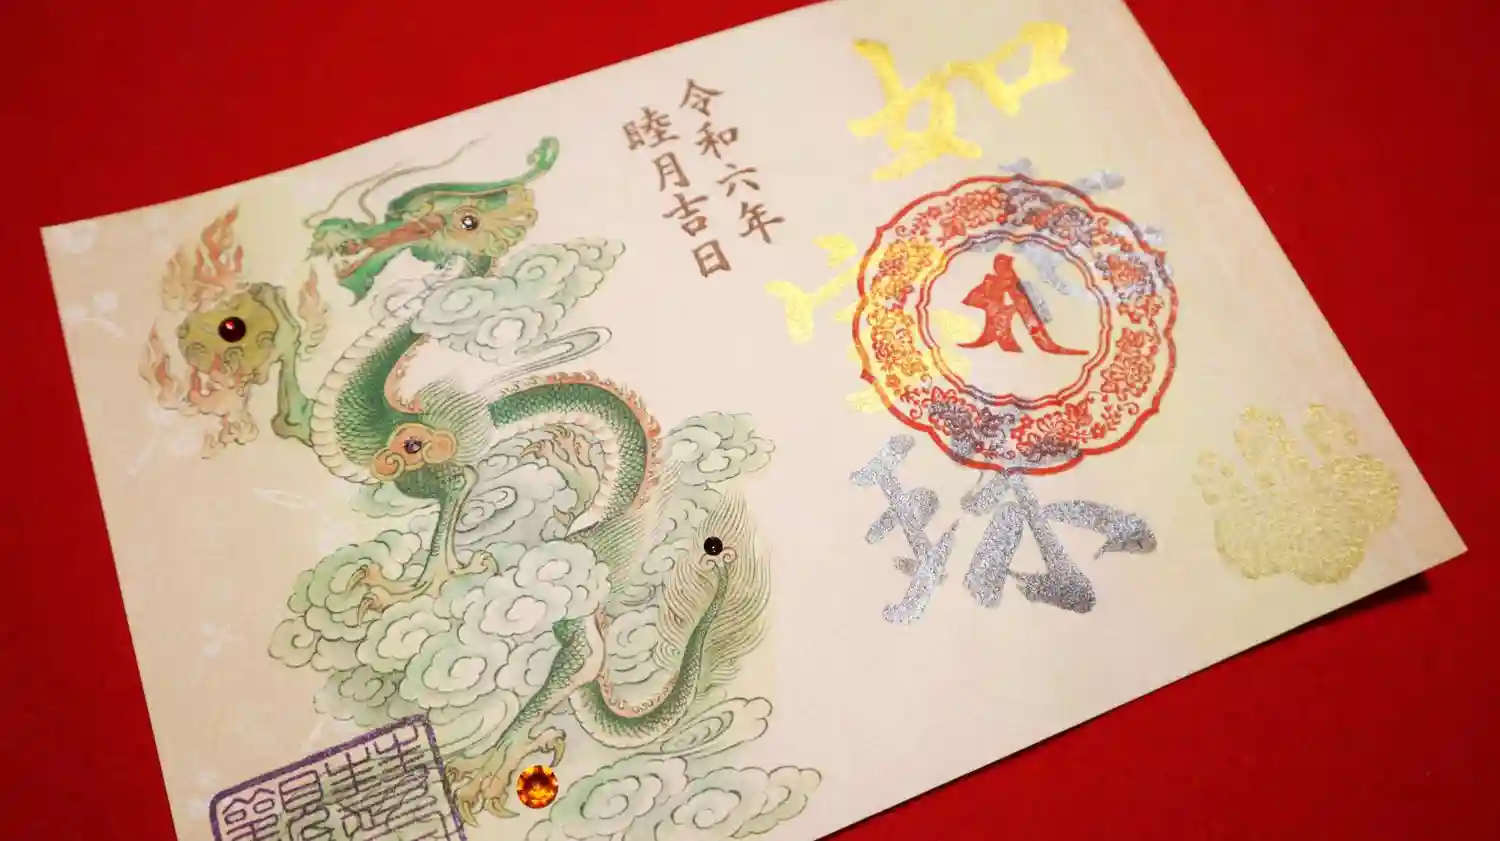 如意宝珠
令和六年
睦月吉日